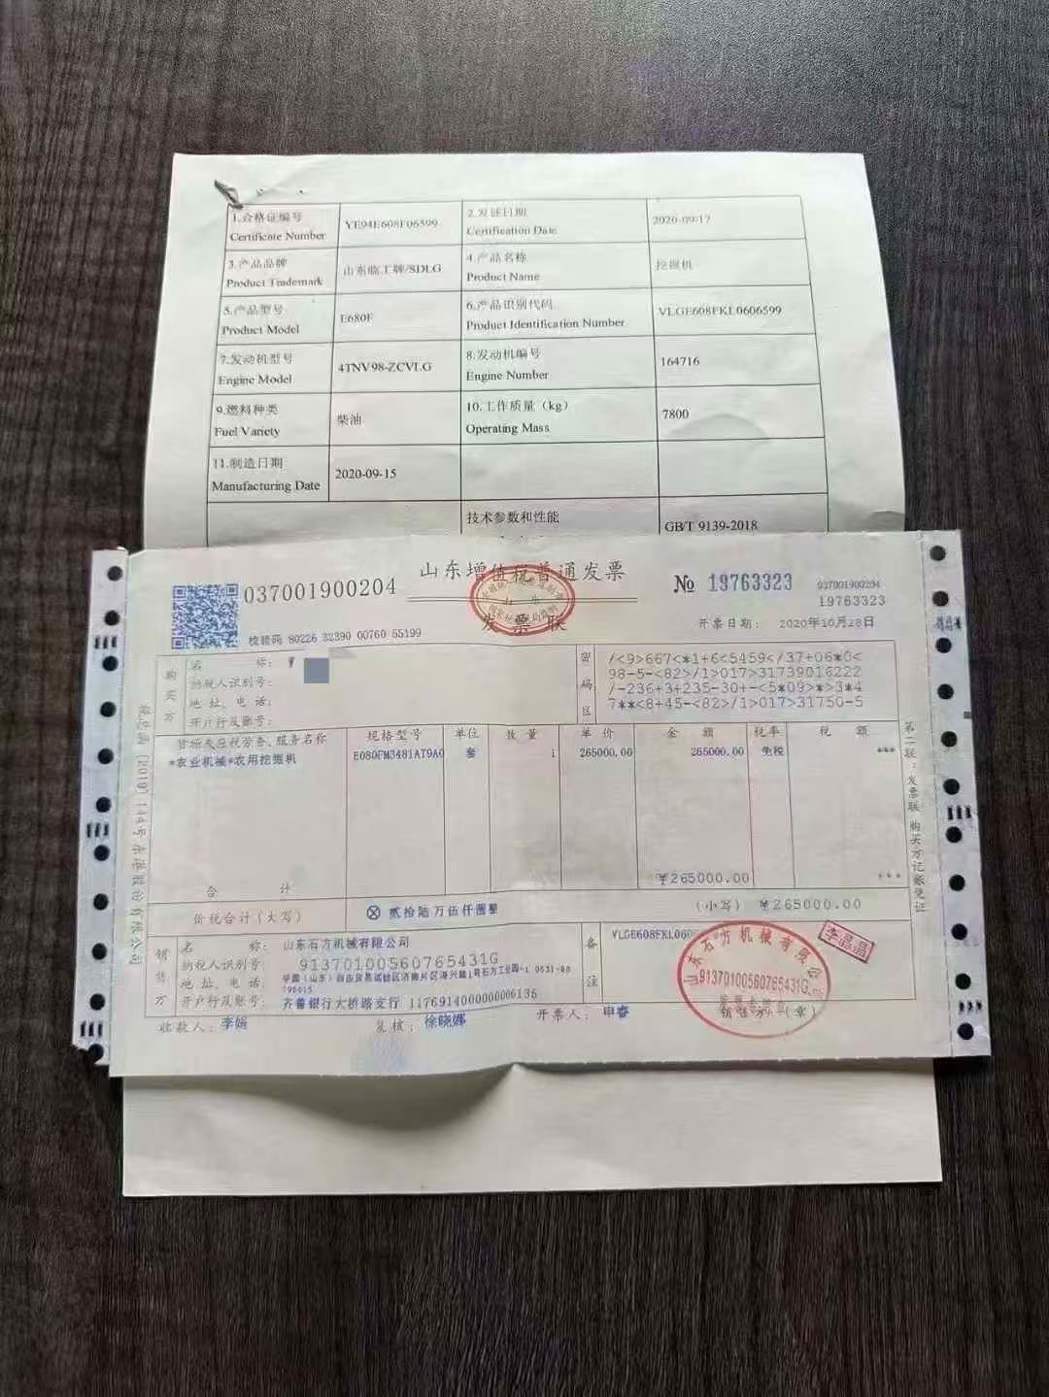 1.合格证编号
Certificate Number
YE94E608F06599
2.发证日期
Certification Date
2020-09-17
3.产品品牌
Product Trademark
山东临工牌/SDLG
4.产品名称
Product Name
挖掘机
5.产品型号
Product Model
E680F
6.产品识别代码
Product Identification Number
VLGE608FKL0606599
7.发动机型号
Engine Model
4TNV98-ZCVLG
8.发动机编号
Engine Number
164716
9.燃料种类
Fuel Variety
柴油
10.工作质量（kg）
Operating Mass
7800
11.制造日期
Manufacturing Date
2020-09-15
技术参数和性能
GB/T 9139-2018
037001900204
山东增值税普通发票
发票联
№ 19763323
037001900204
19763323
校验码 80226 32390 00760 55199
开票日期： 2020年10月28日
购买方
名 称：
纳税人识别号：
地址、电话：
开户行及账号：
密码区
/<9>667<*1+6<5459</37+06*0<
98-5-<82>/1>017>31739016222
/-236+3+235-30+-<5*09>*>3*4
7**<8+45-<82>/1>017>31750-5
货物或应税劳务、服务名称 规格型号 单位 数量 单价 金额 税率 税额
*农业机械*农用挖掘机 套 1 265000.00 265000.00 免税 ***
合 计 ¥265000.00 ***
价税合计（大写） ⊗ 贰拾陆万伍仟圆整 （小写） ¥265000.00
销售方
名 称： 山东石方机械有限公司
纳税人识别号： 91370100560765431G
地址、电话：
开户行及账号： 齐鲁银行大桥路支行
备注
VLGE608FKL060
山东石方机械有限公司
91370100560765431G
李晶晶
销售方：（章）
收款人： 李娟 复核： 徐晓娜 开票人： 申睿
第二联：发票联 购买方记账凭证